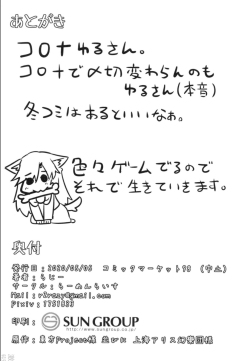 あとがき
コロナゆるさん。
コロナで〆切変わらんのも
ゆるさん(本音)
冬コミはあるといいなぁ。
色々ゲームでるので
それで生きていきます。
奥付
発行日：2020/05/05 コミックマーケット98 (中止)
著者：らじー
サークル：らーめんらいす
Mail：
Pixiv：
印刷：SUN GROUP
http://www.sungroup.co.jp/
原作：東方Project様 並びに 上海アリス幻樂団様